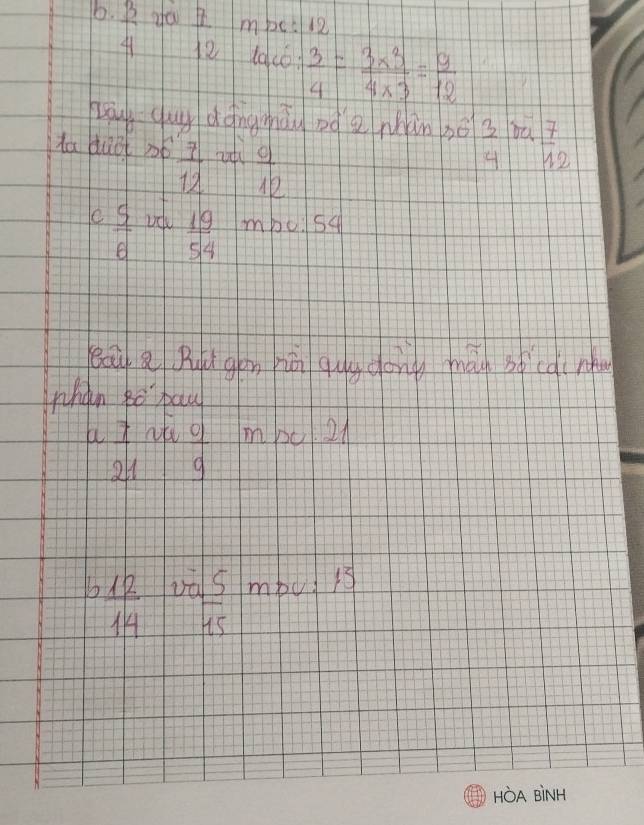 b. 3/4 và 7/12 msc: 12
ta có: 3/4 = 3x3/4x3 = 9/12
Vậy quy đồng mẫu số 2 phân số 3/4 và 7/12
ta được số 7/12 và 9/12
c 5/6 và 19/54 msc: 54
Bài 2 Rút gọn rồi quy đồng mẫu số các
phân số sau
a 7/21 và 9/9 msc: 21
b 12/14 và 5/15 msc: 15
HÒA BÌNH